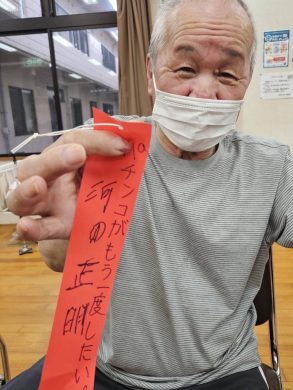 パチンコがもう一度したい。
河田正明